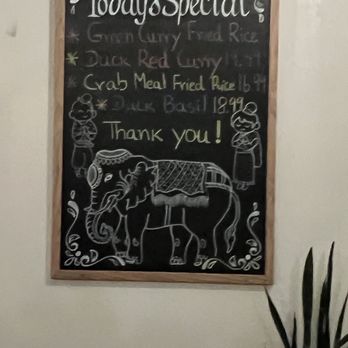 Today's Special
* Green Curry Fried Rice
* Duck Red Curry
* Crab Meal Fried Rice 16.99
* Duck Basil 18.99
Thank you!